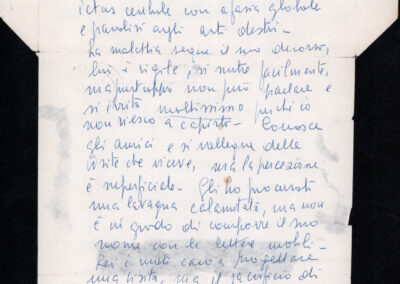 ictus cerebrale con afasia globale
e paralisi agli arti destri.-
La malattia segue il suo decorso,
lui è vigile, si nutre facilmente,
ma purtroppo non può parlare e
si irrita moltissimo perché io
non riesco a capirlo - Conosce
gli amici e si rallegra delle
visite che riceve, ma la percezione
è superficiale - Gli ho procurato
una lavagna calamitata, ma non
è in grado di comporre il suo
nome con le lettere mobili -
Lei è molto caro a progettare
una visita, ma il sacrificio di